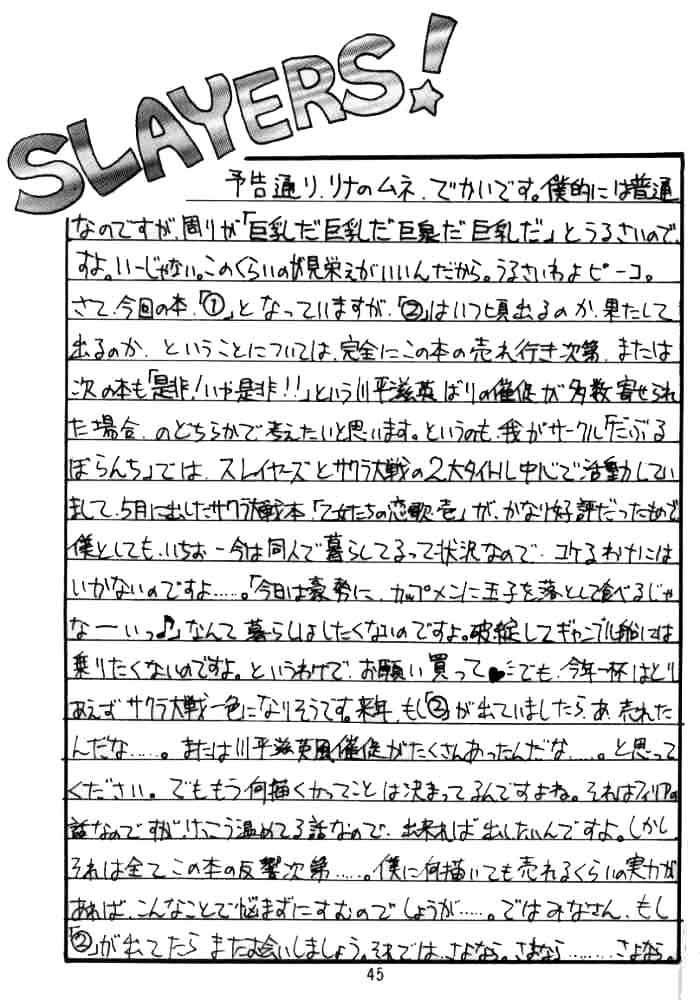 SLAYERS!
予告通り、リナのムネ、でかいです。僕的には普通
なのですが、周りが「巨乳だ巨乳だ巨乳だ巨乳だ」とうるさいので
すよ。いーじゃない。このくらいのが見栄えがいいんだから。うるさいわよピーコ。
さて、今回の本、「①」となっていますが、「②」はいつ頃出るのか、果たして
出るのか、ということについては、完全にこの本の売れ行き次第、または
次の本も「是非!いや是非!!」という川平滋英ばりの催促が多数寄せられ
た場合、のどちらかで考えたいと思います。というのも、我がサークル「だぶる
ぼらんち」では、スレイヤーズとサクラ大戦の2大タイトル中心で活動してい
まして、5月に出したサクラ大戦本「乙女たちの恋歌 壱」が、かなり好評だったもので
僕としても、いちおー今は同人で暮らしてるって状況なので、コケるわけには
いかないのですよ……。「今日は豪勢に、カップメンに玉子を落として食べるじゃ
なーいっ♪」なんて暮らしはしたくないのですよ。破綻してギャンブル船には
乗りたくないのですよ。というわけで、お願い買って♥…でも、今年一杯はとり
あえずサクラ大戦一色になりそうです。来年、もし「②」が出ていましたら、あ、売れた
んだな……。または川平滋英風催促がたくさんあったんだな……。と思って
ください。でももう何描くかってことは決まってるんですよね。それはフィリアの
話なのですが、けっこう温めてる話なので、出来れば出したいんですよ。しかし
それは全てこの本の反響次第……。僕に何描いても売れるくらいの実力が
あれば、こんなことで悩まずにすむのでしょうが……。ではみなさん、もし
「②」が出てたらまたお会いしましょう。それでは、さよなら。さよなら……さよなら。
45